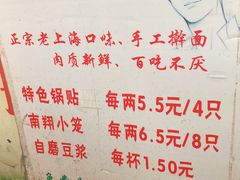 正宗老上海口味、手工擀面
肉质新鲜、百吃不厌
特色锅贴 每两5.5元/4只
南翔小笼 每两6.5元/8只
自磨豆浆 每杯1.50元